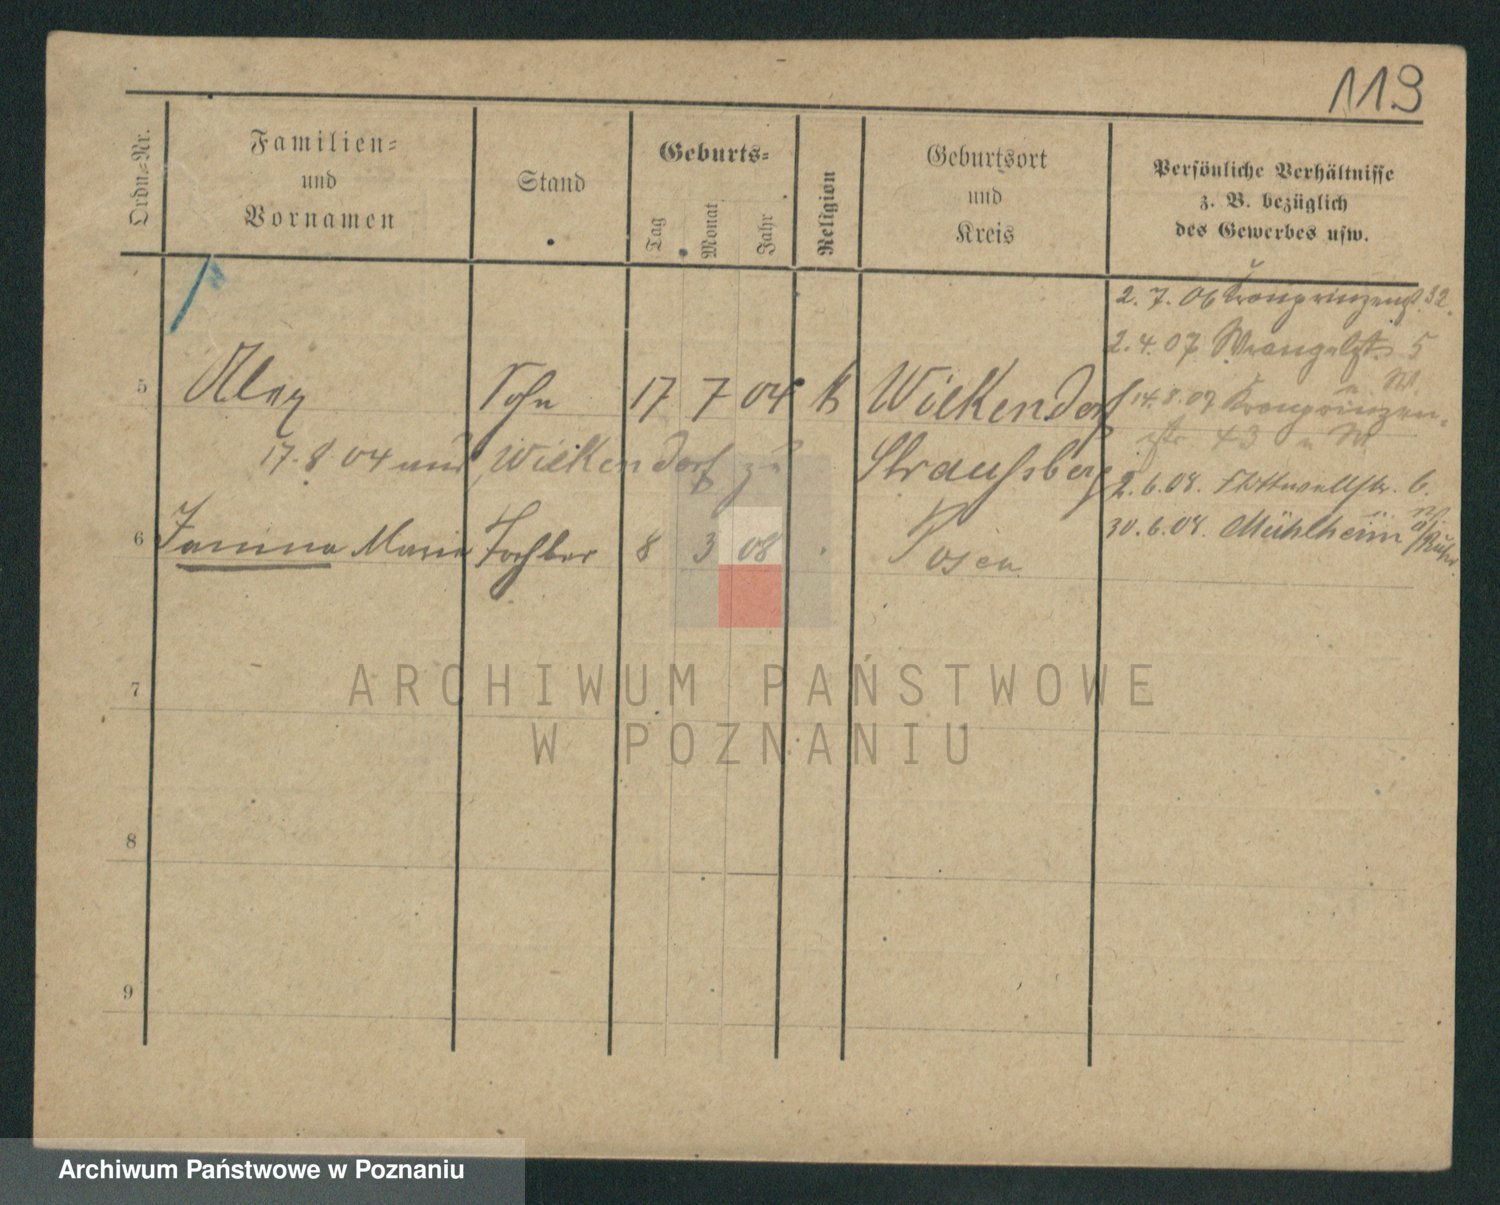 119
Ordn.-Nr.
Familien-
und
Vornamen
Stand
Geburts-
Tag
Monat
Jahr
Religion
Geburtsort
und
Kreis
Persönliche Verhältnisse
z. B. bezüglich
des Gewerbes usw.
2. 7. 06 Kronprinzenst. 32.
2. 4. 07 Wrangelst. 5
5 Alex Sohn 17 7 04 k Wilkendorf
14.8.07 Kronprinzen-
str. 43
17. 8 04 und Wilkendorf zu Straußberg
2. 6. 08. Flottwellstr. 6.
6 Janina Marie Tochter 8 3 08 Posen
30. 6. 08. Mühlheim a/Ruhr.
7
8
9
ARCHIWUM PAŃSTWOWE
W POZNANIU
Archiwum Państwowe w Poznaniu